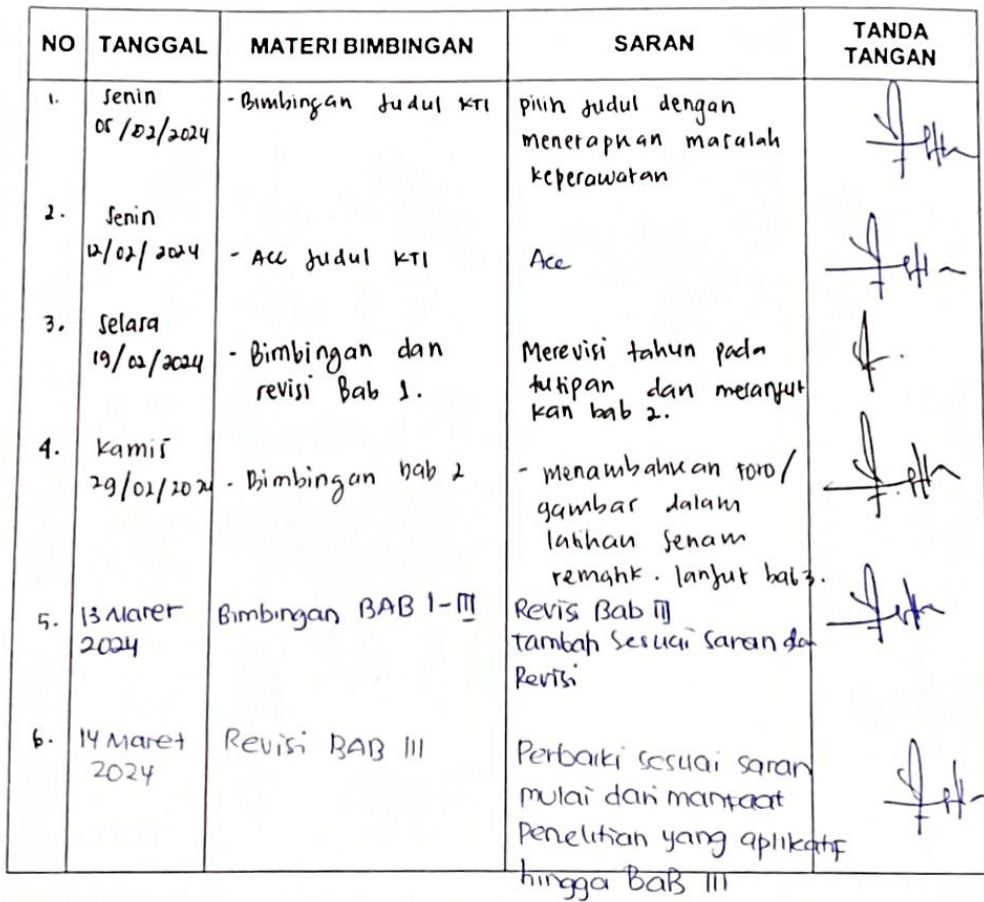 NO TANGGAL MATERI BIMBINGAN SARAN TANDA TANGAN
1. Senin - Bimbingan Judul KTI pilih Judul dengan
05/02/2024 menetapkan masalah
keperawatan
2. Senin
12/02/2024 - Acc Judul KTI Acc
3. Selasa
19/02/2024 - Bimbingan dan Merevisi tahun pada
revisi Bab 1. kutipan dan melanjut
kan bab 2.
4. Kamis
29/02/2024 - Bimbingan bab 2 - menambahkan foto/
gambar dalam
latihan Senam
rematik. lanjut bab 3.
5. 13 Maret Bimbingan BAB I-III Revis Bab III
2024 tambah sesuai saran dan
Revisi
6. 14 Maret Revisi BAB III Perbaiki sesuai saran
2024 mulai dari manfaat
Penelitian yang aplikatif
hingga BAB III